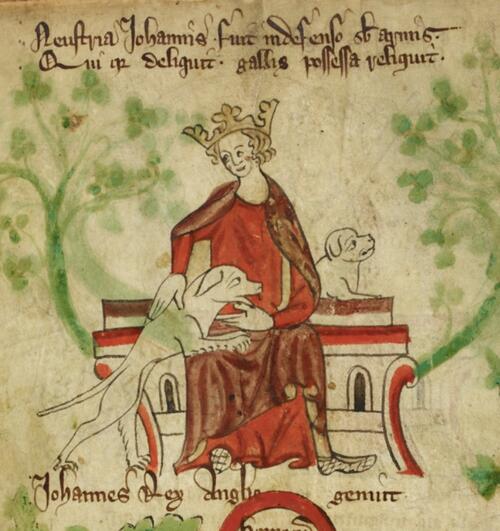 Neustria Johannis fuit indefenso sb armis·
Qui qr deliquit· gallis possessa reliquit·
Johannes Rex Anglie genuit